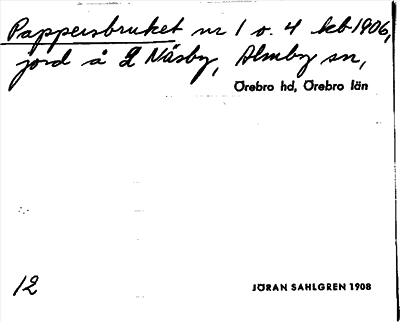 Pappersbruket nr 1 o. 4 kb 1906,
jord å L Näsby, Almby sn,
Örebro hd, Örebro län
12
JÖRAN SAHLGREN 1908